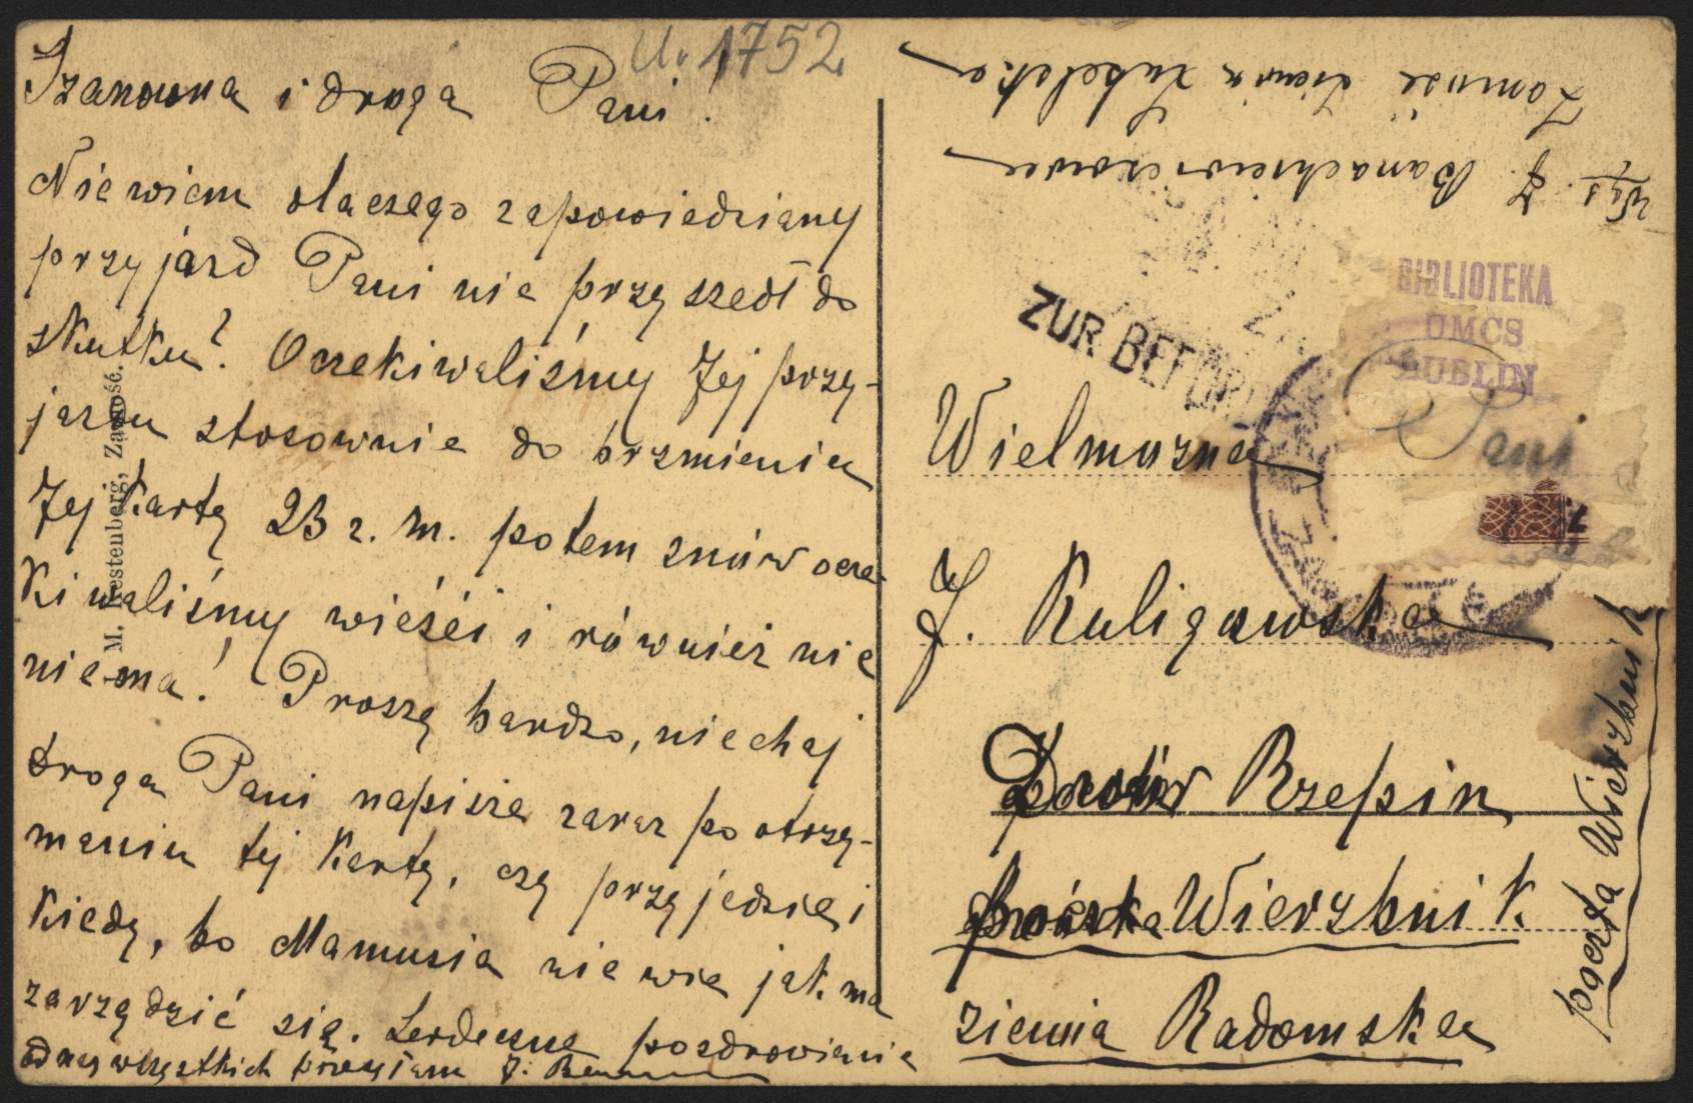 U. 1752
Szanowna i droga Pani!
Nie wiem dlaczego zapowiedziany
przyjazd Pani nie przyszedł do
skutku? Oczekiwaliśmy Jej przy-
jazdu stosownie do brzmienia
Jej Karty 23 z. m. potem znów ocze-
kiwaliśmy wieści i również nic
niema! Proszę bardzo, niechaj
droga Pani napisze zaraz po otrzy-
maniu tej Karty, czy przyjedzie i
kiedy, bo Mamusia nie wie jak ma
zarządzić się. Serdeczne pozdrowienia
od nas wszystkich przesyłam J.
M. Zamość.
Wys. J. Banachiewiczowa
Zamość ziemia Lubelska
ZUR BEFÖR
BIBLIOTEKA
UMCS
LUBLIN
Wielmożna Pani
J. Kuligowska
Rzepin
Wierzbnik
ziemia Radomska
poczta Wierzbnik